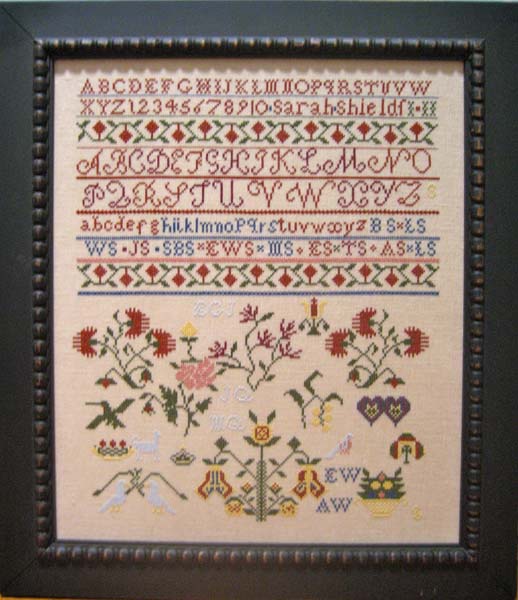 ABCDEFGHIJKLMNOPQRSTUVW
XYZ12345678910·Sarah·Shieldf
ABCDEFGHIJKLMNO
PQRSTUVWXYZ S
abcdefghiklmnopqrstuvwxyz BS×LS
WS·JS·SBS×EWS×MS×ES×TS×AS×LS
EW
AW
S